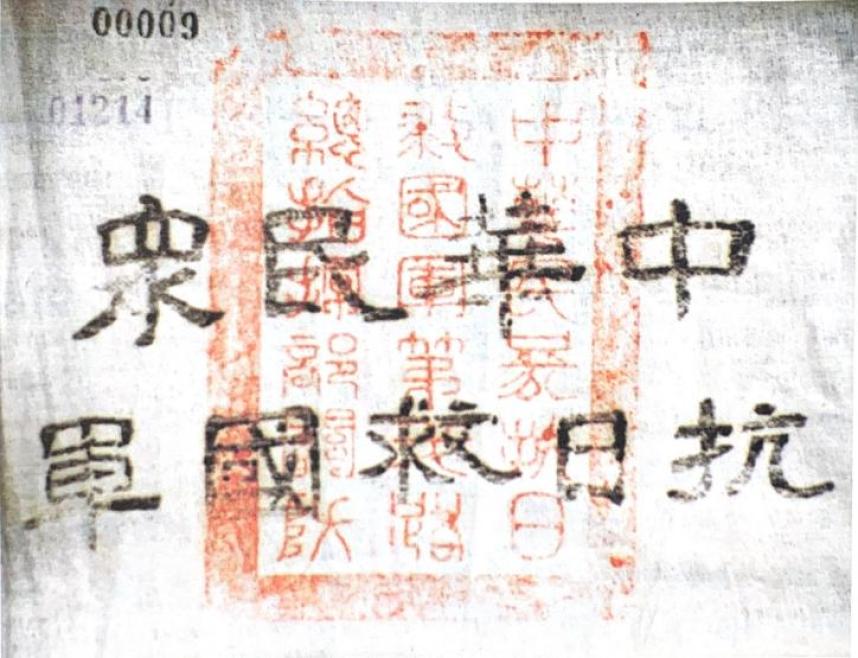 00009
01214
中華民眾
抗日救國軍
中華民眾抗日
救國軍第路
總指揮部